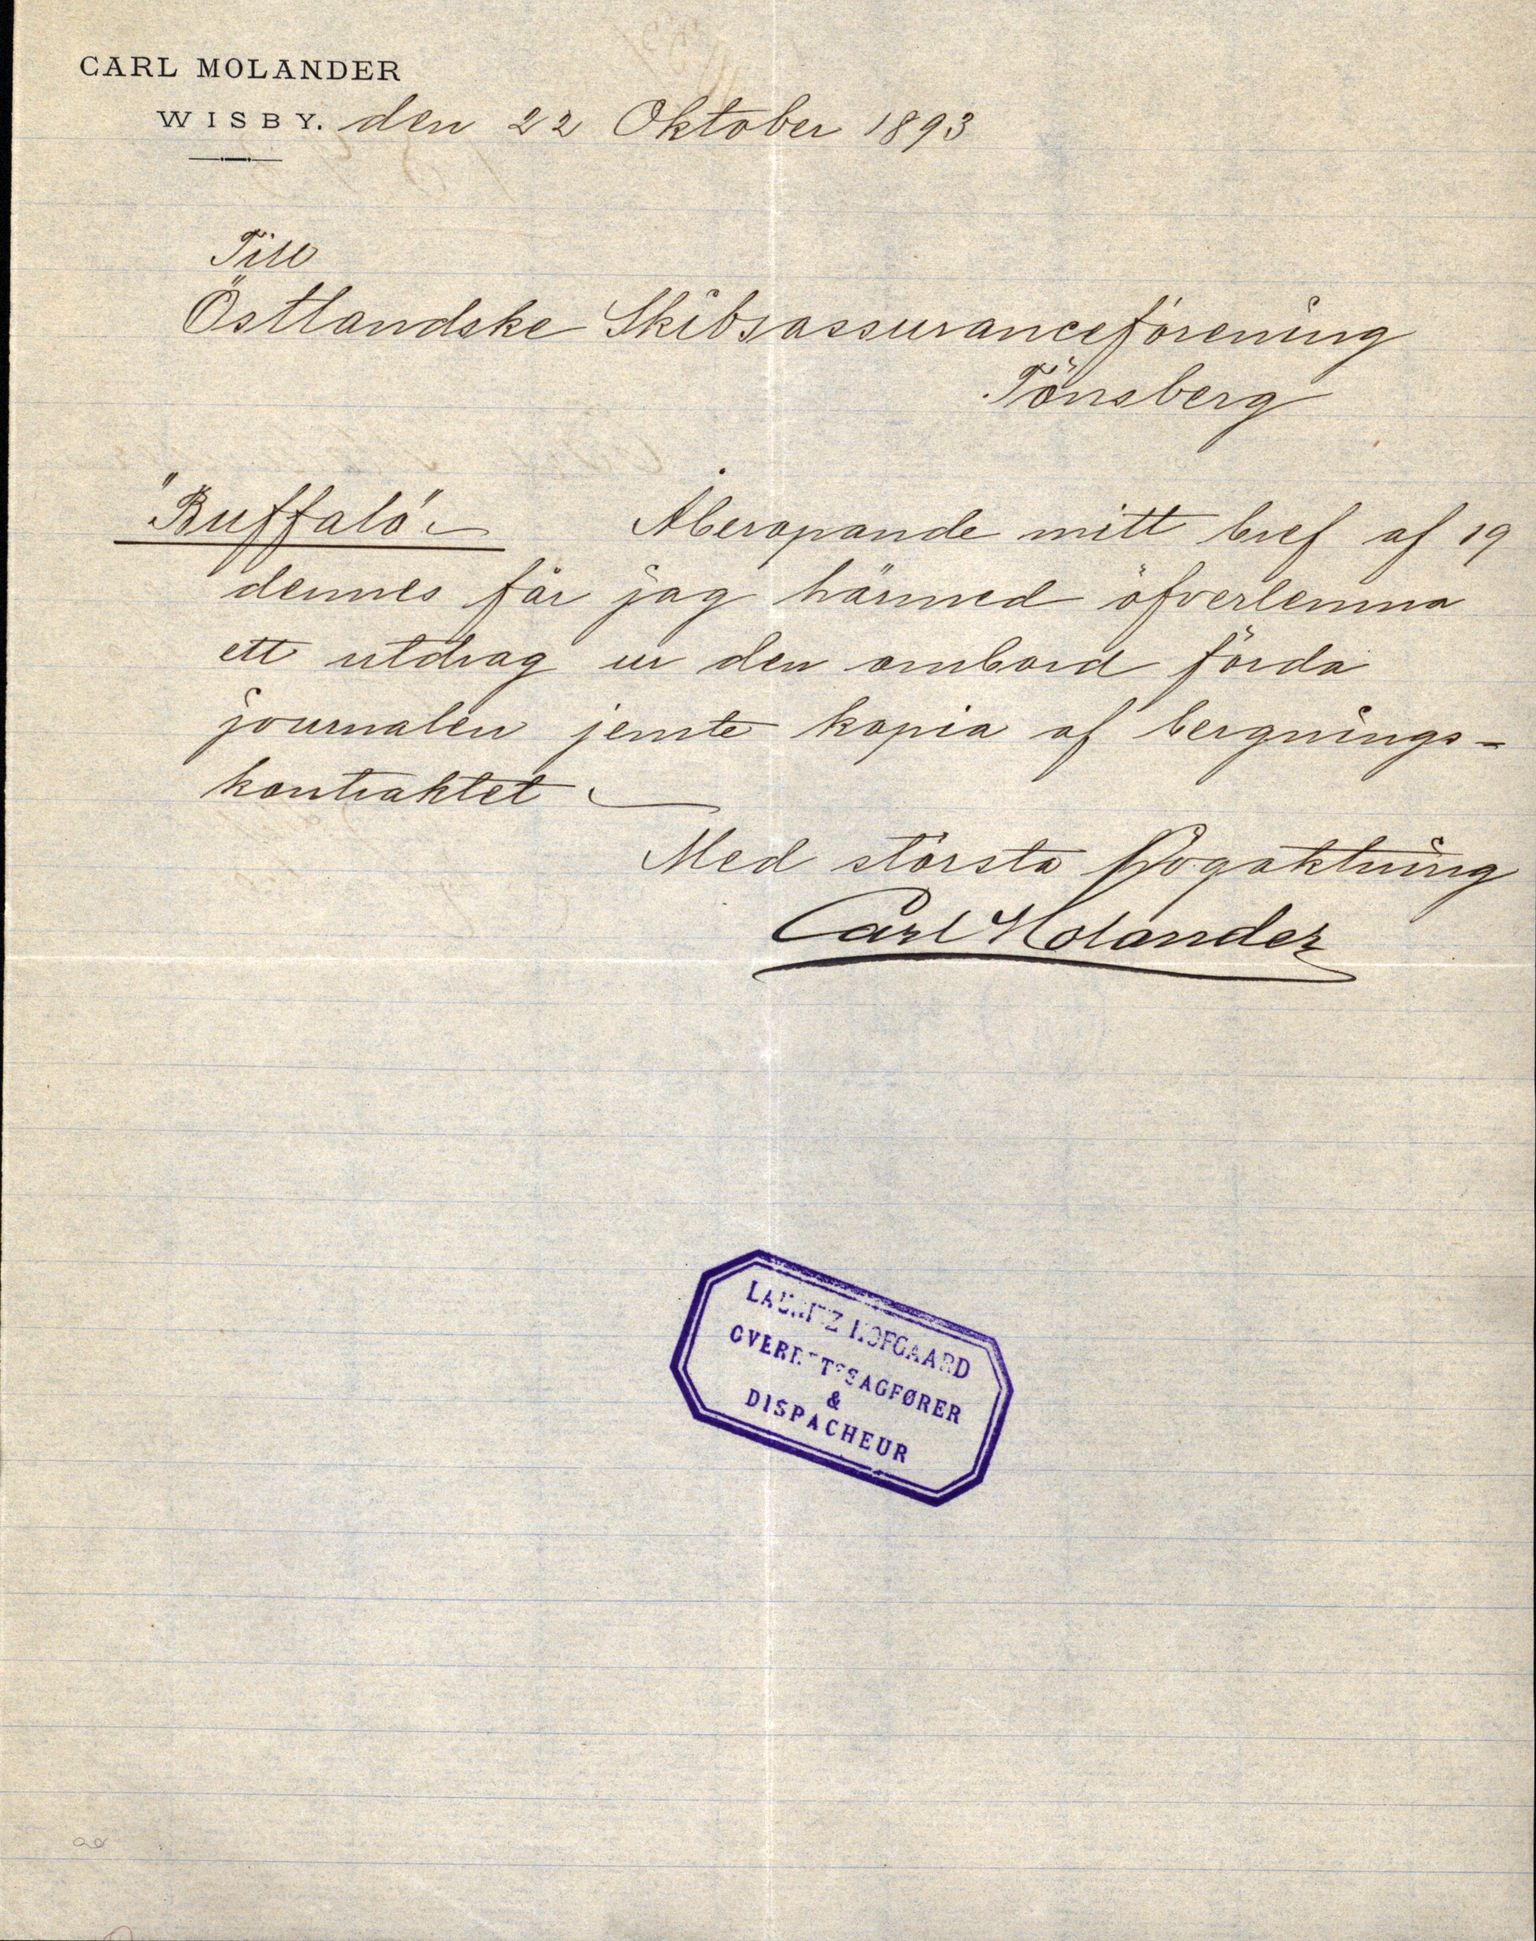 CARL MOLANDER
WISBY. den 22 Oktober 1893
Till
Östlandske Skibsassuranceförening
Tönsberg
"Buffalo" Åberopande mitt bref af 19
dennes får jag härmed öfverlemna
ett utdrag ur den ombord förda
journalen jemte kopia af bergnings-
kontraktet
Med största Högaktning
Carl Molander
LAURITZ HOFGAARD
OVERRETSSAGFØRER
&
DISPACHEUR